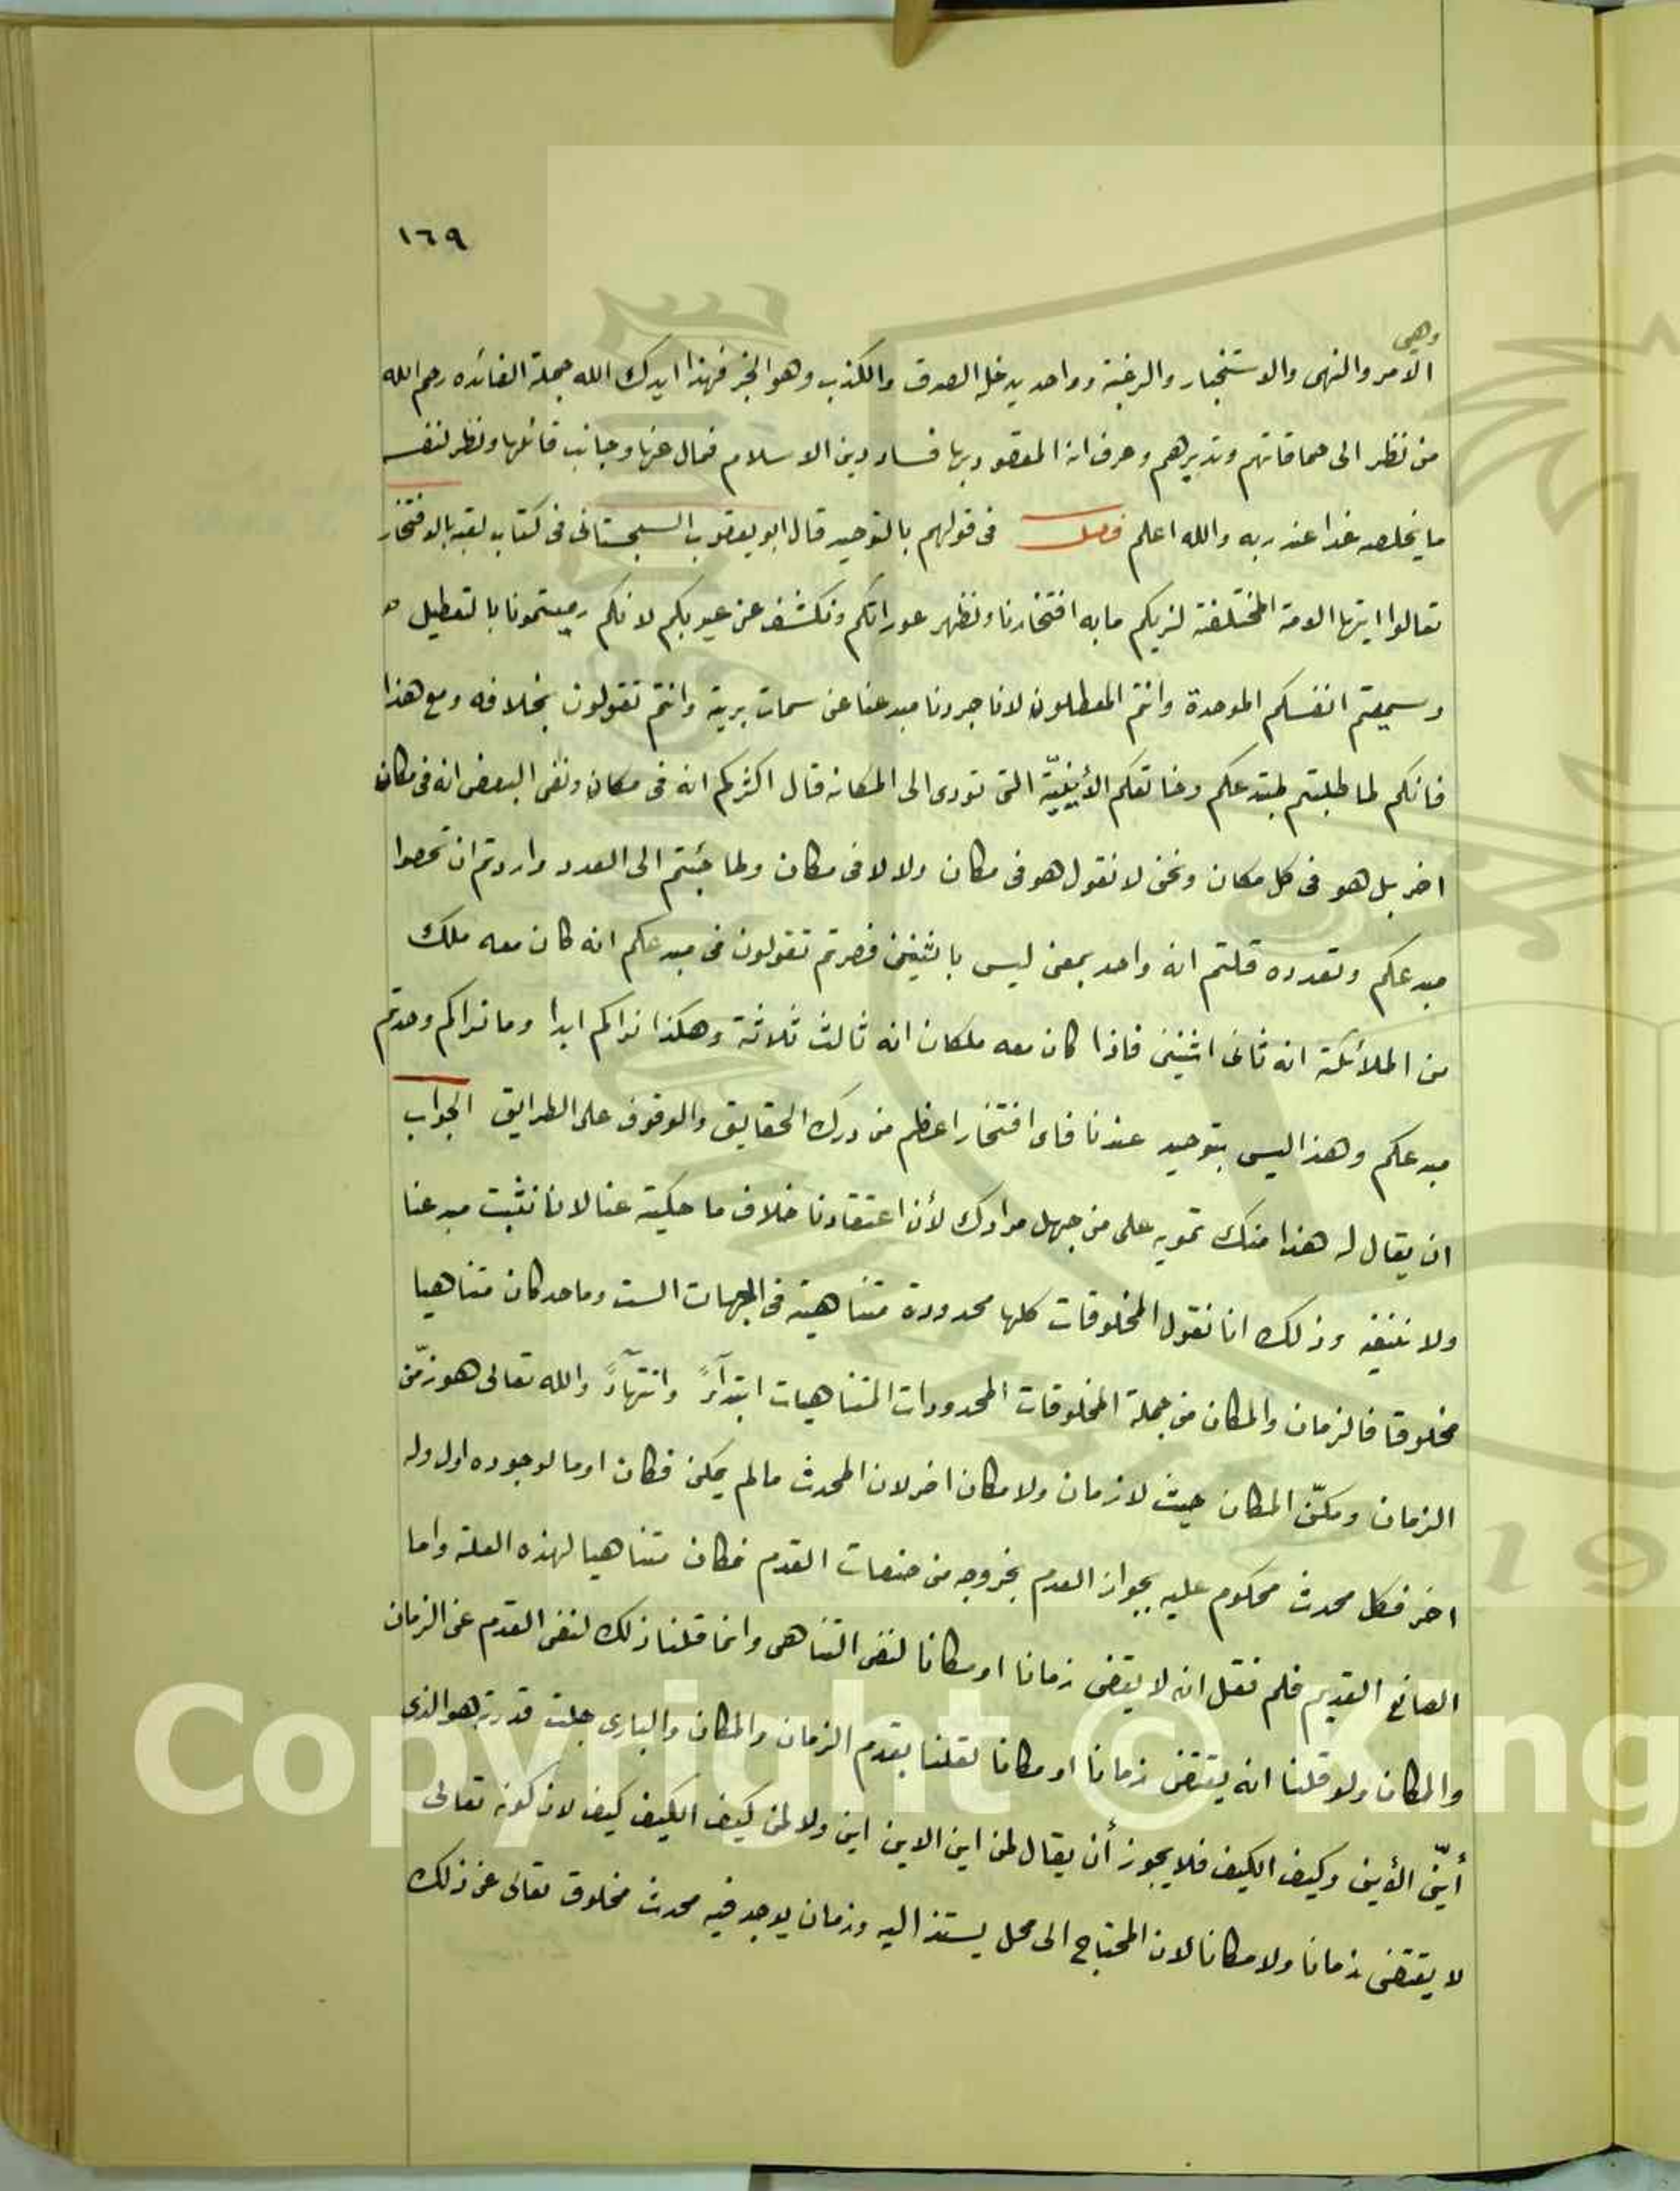 ١٦٩
وهي
الامر والنهى والاستخبار والرغبة وواحد يدخله الصدق والكذب وهو الخبر فهذا ايدك الله جملة الفائده رحم الله
من نظر الى حماقاتهم وتدبيرهم وعرف ان المقصود بها فساد دين الاسلام فمال عنها وجانب قائلها ونظر لنفسه
ما يخلصه غدا عند ربه والله اعلم فصل فى قولهم بالتوحيد قال ابو يعقوب السجستانى فى كتاب لقبه بالافتخار
تعالوا ايتها الامة المختلفة لنريكم ما به افتخارنا ونظهر عوراتكم ونكشف عن عيوبكم لانكم رميتمونا بالتعطيل
وسميتم انفسكم الموحدة وانتم المعطلون لانا جردنا مبدعنا عن سمات بريته وانتم تقولون بخلافه ومع هذا
فانكم لما طلبتم لمبتدعكم وخالقكم الأينيّة التى تودى الى المكانه قال اكثركم انه فى مكان ونفى البعض انه فى مكان
اخر بل هو فى كل مكان ونحن لا نقول هو فى مكان ولا لا فى مكان ولما جئتم الى العدد واردتم ان تحصوا
مبدعكم وتعدوه قلتم انه واحد بمعنى ليس باثنين فصرتم تقولون فى مبدعكم انه كان معه ملك
من الملائكة انه ثانى اثنين فاذا كان معه ملكان انه ثالث ثلاثة وهكذا نراكم ابدا وما نراكم وحدتم
مبدعكم وهذا ليس بتوحيد عندنا فاى افتخار اعظم من درك الحقايق والوقوف على الطرايق الجواب
ان يقال له هذا منك تمويه على من جهل مرادك لأن اعتقادنا خلاف ما حكيته عنا لانا نثبت مبدعنا
ولا ننفيه وذلك انا نقول المخلوقات كلها محدودة متناهية فى الجهات الست وما حد كان متناهيا
مخلوقا فالزمان والمكان من جملة المخلوقات المحدودات المتناهيات ابتدآءً وانتهآءً والله تعالى هو زمّن
الزمان ومكّن المكان حيث لا زمان ولا مكان اخر لان المحدث مالم يكن فكان او ما لوجوده اول وله
اخر فكل محدث محكوم عليه بجواز العدم بخروجه من صفات القدم فكان متناهيا لهذه العلة واما
الصانع القديم فلم نقل انه لا يقتضى زمانا او مكانا لنفى التناهى وانما قلنا ذلك لنفى القدم عن الزمان
والمكان ولو قلنا انه يقتضى زمانا او مكانا لقلنا بقدم الزمان والمكان والبارى جلت قدرته هو الذى
أيّن الأين وكيف الكيف فلا يجوز أن يقال لمن اين الاين اين ولا لمن كيف الكيف كيف لان كونه تعالى
لا يقتضى زمانا ولا مكانا لان المحتاج الى محل يستند اليه وزمان يوجد فيه محدث مخلوق تعالى عن ذلك
Copyright © King
19